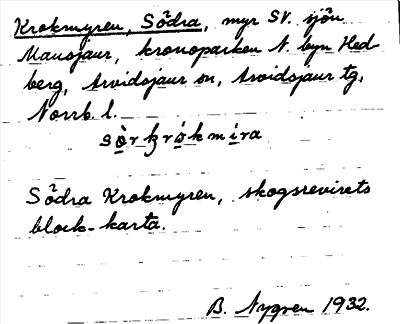 Krokmyren, Södra, myr SV. sjön
Mausjaur, kronoparken N. byn Hed-
berg, Arvidsjaur sn, Arvidsjaur tg,
Norrb. l.
sòrkrókmira
Södra Krokmyren, skogsrevirets
block-karta.
B. Nygren 1932.